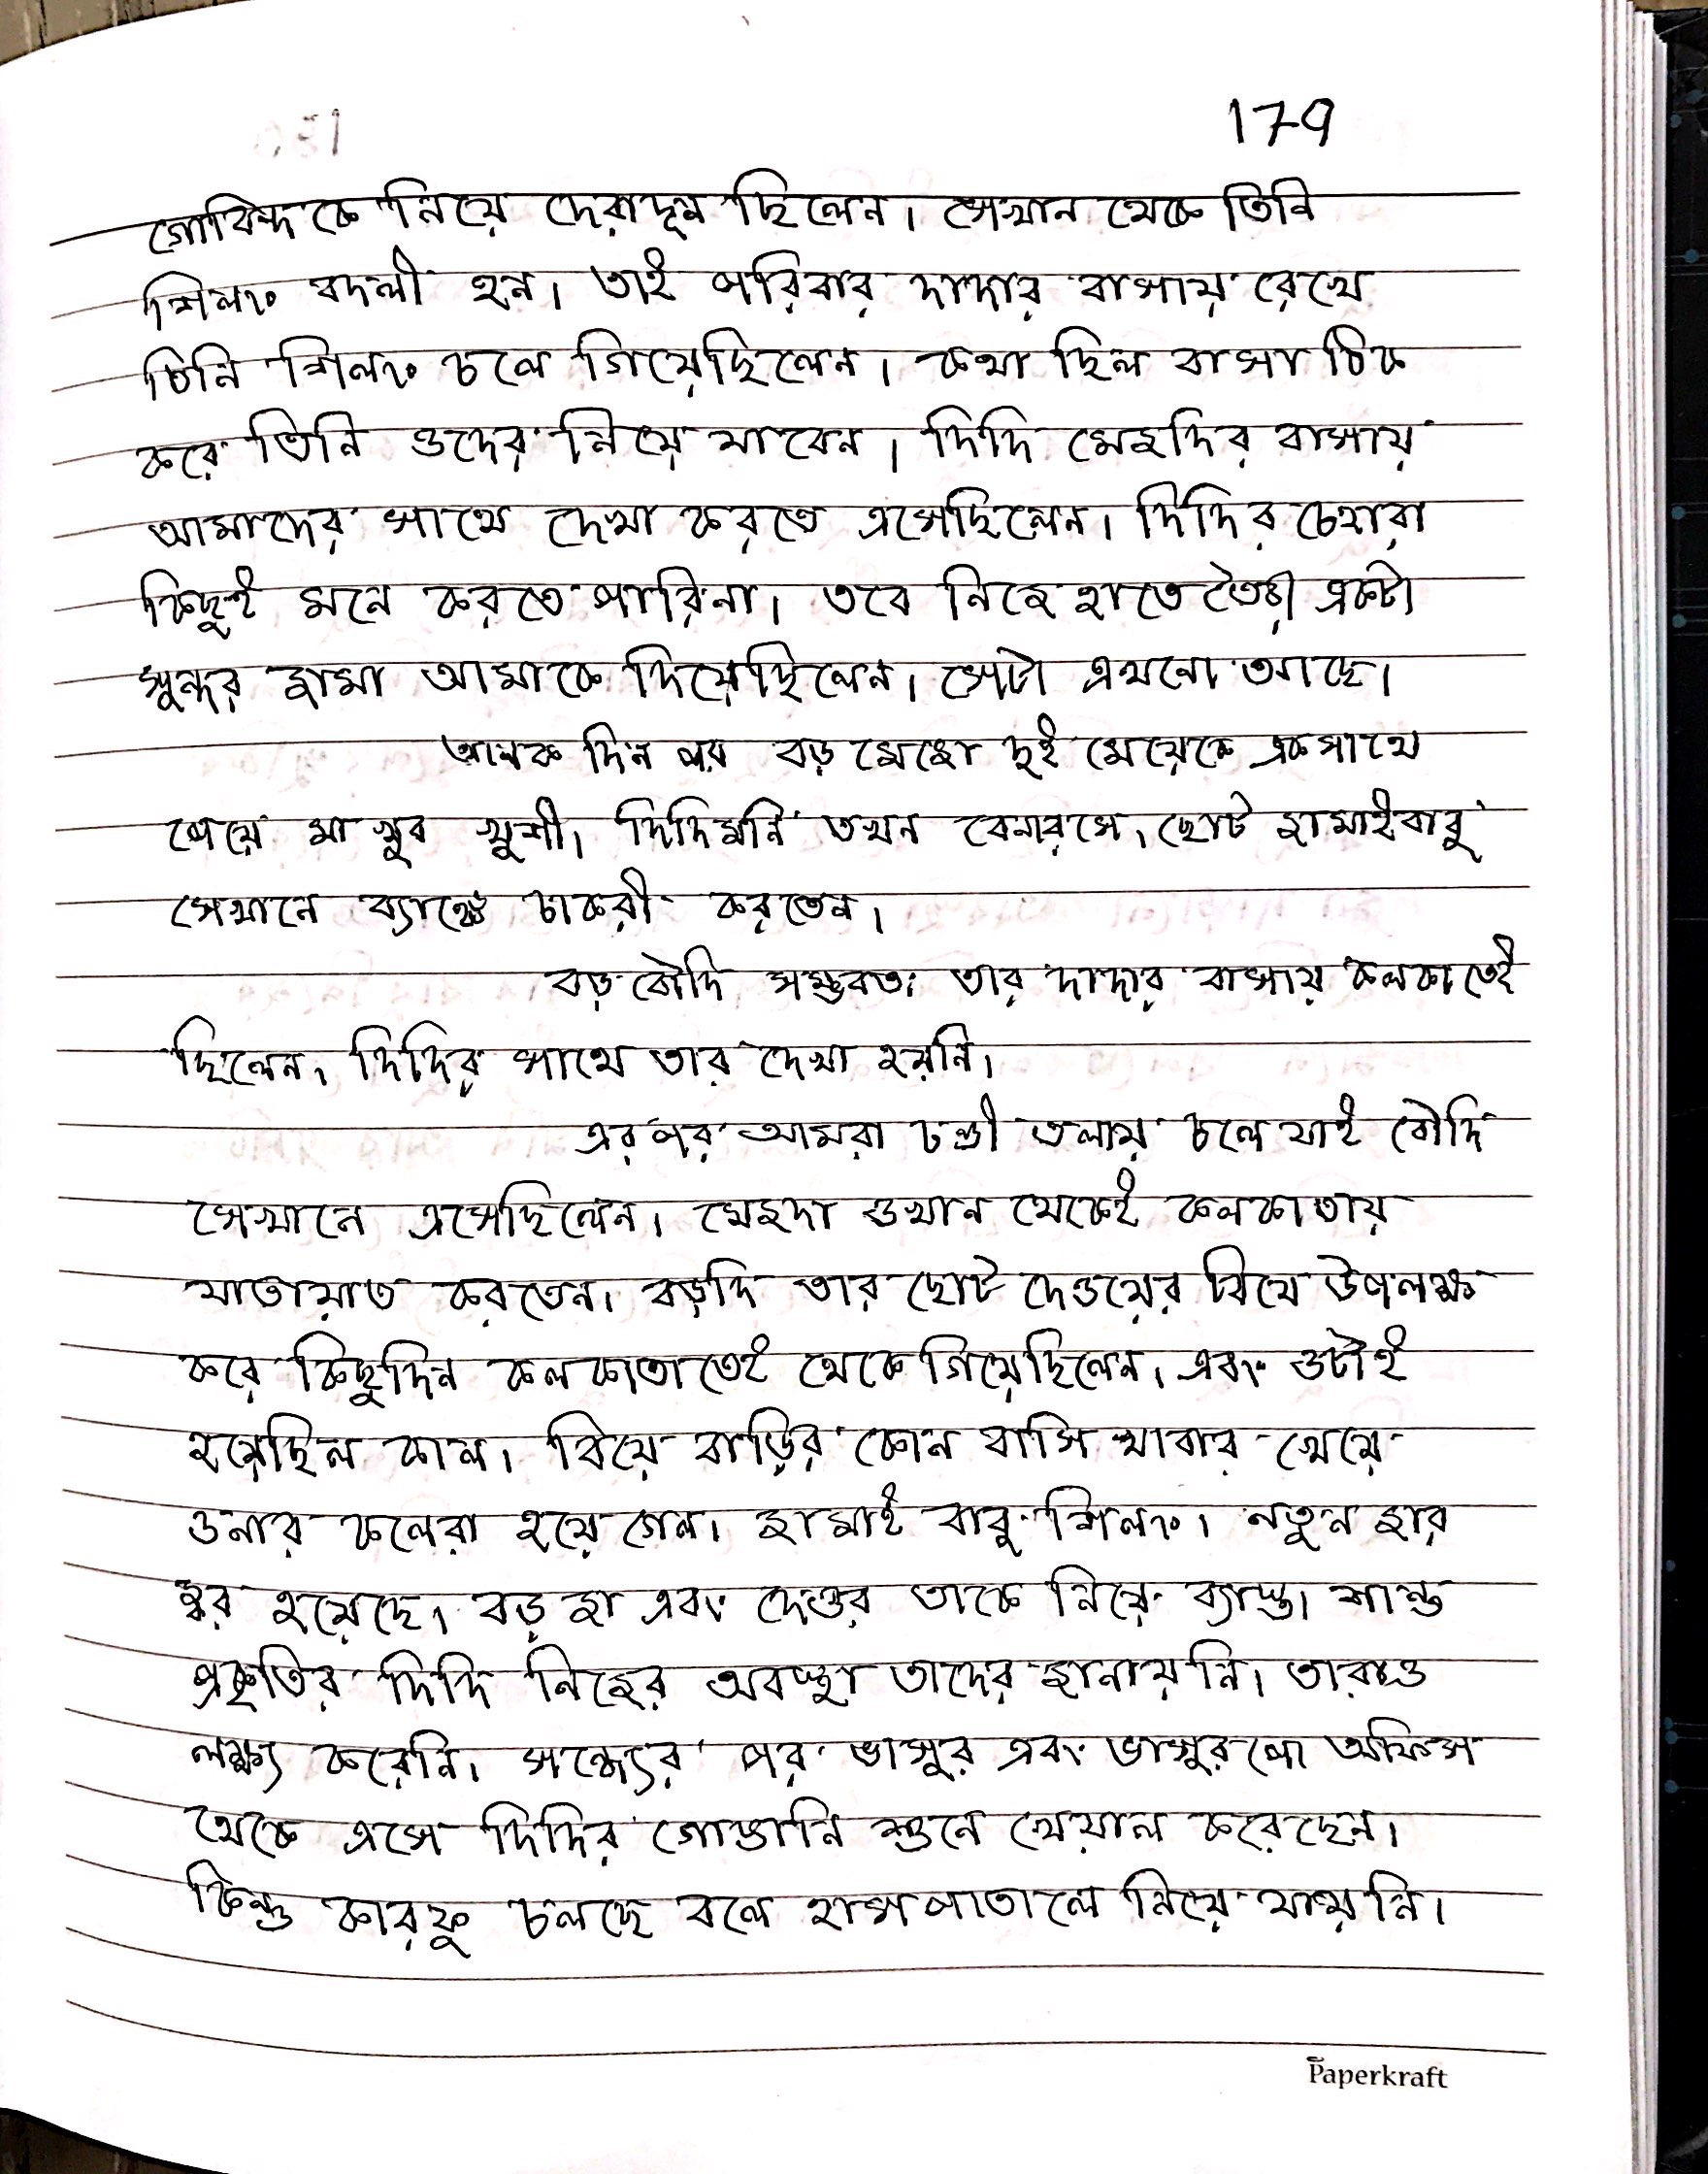 179
গোবিন্দকে নিয়ে দেরাদুন ছিলেন। সেখান থেকে তিনি
শিলং বদলী হন। তাই পরিবার দাদার বাসায় রেখে
তিনি শিলং চলে গিয়েছিলেন। কথা ছিল বাসা ঠিক
করে তিনি ওদের নিয়ে যাবেন। দিদি মেজদির বাসায়
আমাদের সাথে দেখা করতে এসেছিলেন। দিদির চেহারা
কিছুই মনে করতে পারিনা। তবে নিজে হাতে তৈরী একটা
সুন্দর জামা আমাকে দিয়েছিলেন। সেটা এখনো আছে।
অনেক দিন পর বড় মেজো দুই মেয়েকে একসাথে
পেয়ে মা খুব খুশী। দিদিমনি তখন বেনারসে। ছোট জামাইবাবু
সেখানে ব্যাঙ্কে চাকরী করতেন।
বড় বৌদি সম্ভবতঃ তার দাদার বাসায় কলকাতেই
ছিলেন। দিদির সাথে তার দেখা হয়নি।
এর পর আমরা চণ্ডী তলায় চলে যাই বৌদি
সেখানে এসেছিলেন। মেজদা ওখান থেকেই কলকাতায়
যাতায়াত করতেন। বড়দি তার ছোট দেওয়ের বিয়ে উপলক্ষ
করে কিছুদিন কলকাতাতেই থেকে গিয়েছিলেন। এবং ওটাই
হয়েছিল কাল। বিয়ে বাড়ির কোন বাসি খাবার খেয়ে
ওনার কলেরা হয়ে গেল। জামাই বাবু শিলং। নতুন জার
জ্বর হয়েছে। বড় জা এবং দেওর তাকে নিয়ে ব্যাস্ত। শান্ত
প্রকৃতির দিদি নিজের অবস্থা তাদের জানায়নি। তারাও
লক্ষ্য করেনি। সন্ধ্যের পর ভাসুর এবং ভাসুর পো অফিস
থেকে এসে দিদির গোঙানি শুনে খেয়াল করেছেন।
কিন্তু কারফু চলছে বলে হাসপাতালে নিয়ে যায়নি।
Paperkraft